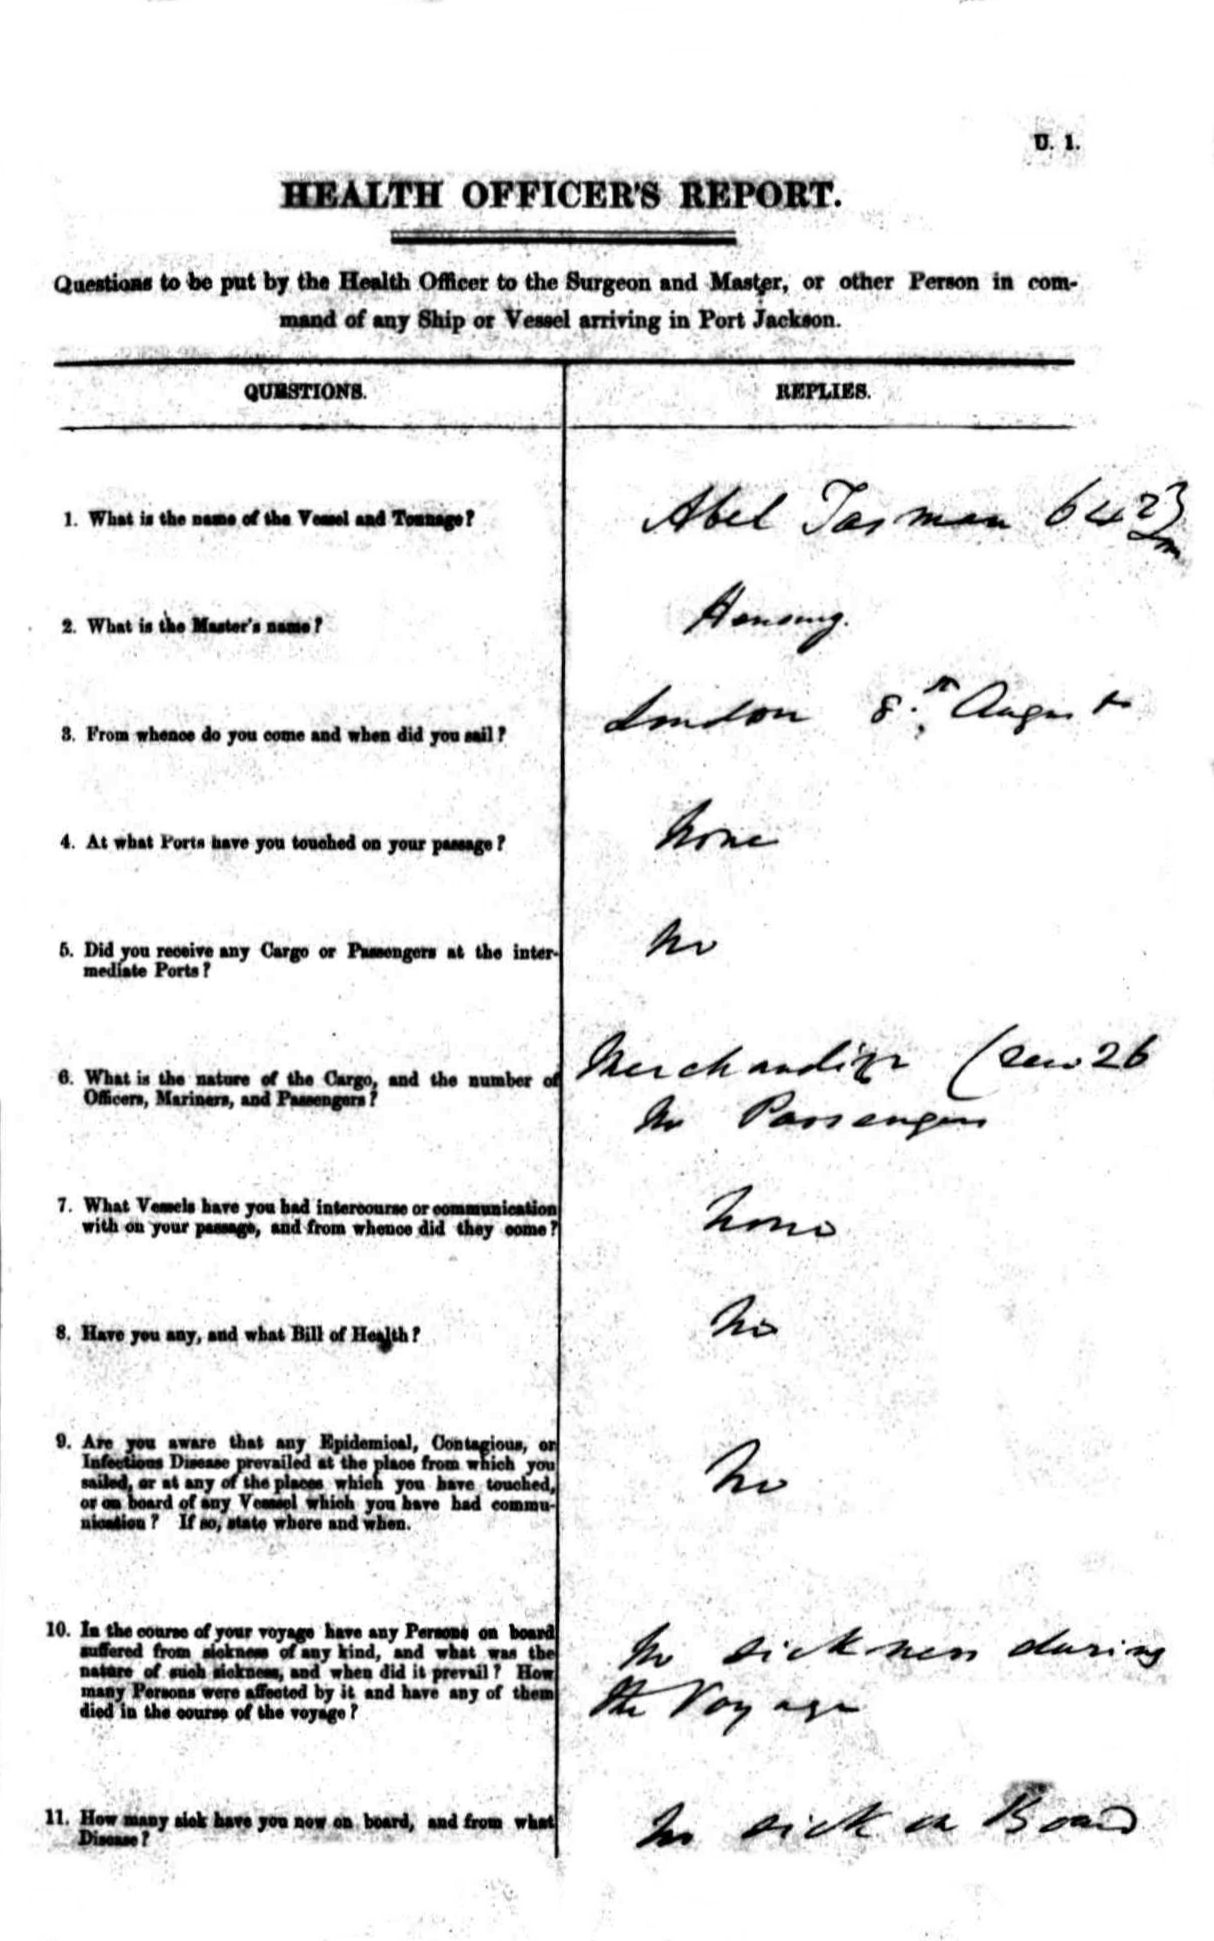 U. 1.
HEALTH OFFICER'S REPORT.
Questions to be put by the Health Officer to the Surgeon and Master, or other Person in com-
mand of any Ship or Vessel arriving in Port Jackson.
QUESTIONS.
REPLIES.
1. What is the name of the Vessel and Tonnage?
Abel Tasman 642
2. What is the Master's name?
3. From whence do you come and when did you sail?
London 8th August
4. At what Ports have you touched on your passage?
None
5. Did you receive any Cargo or Passengers at the inter-
mediate Ports?
No
6. What is the nature of the Cargo, and the number of
Officers, Mariners, and Passengers?
Merchandize Crew 26
No Passengers
7. What Vessels have you had intercourse or communication
with on your passage, and from whence did they come?
None
8. Have you any, and what Bill of Health?
No
9. Are you aware that any Epidemical, Contagious, or
Infectious Disease prevailed at the place from which you
sailed, or at any of the places which you have touched,
or on board of any Vessel which you have had commu-
nication? If so, state where and when.
No
10. In the course of your voyage have any Persons on board
suffered from sickness of any kind, and what was the
nature of such sickness, and when did it prevail? How
many Persons were affected by it and have any of them
died in the course of the voyage?
No sickness during
the Voyage
11. How many sick have you now on board, and from what
Disease?
No sick on Board